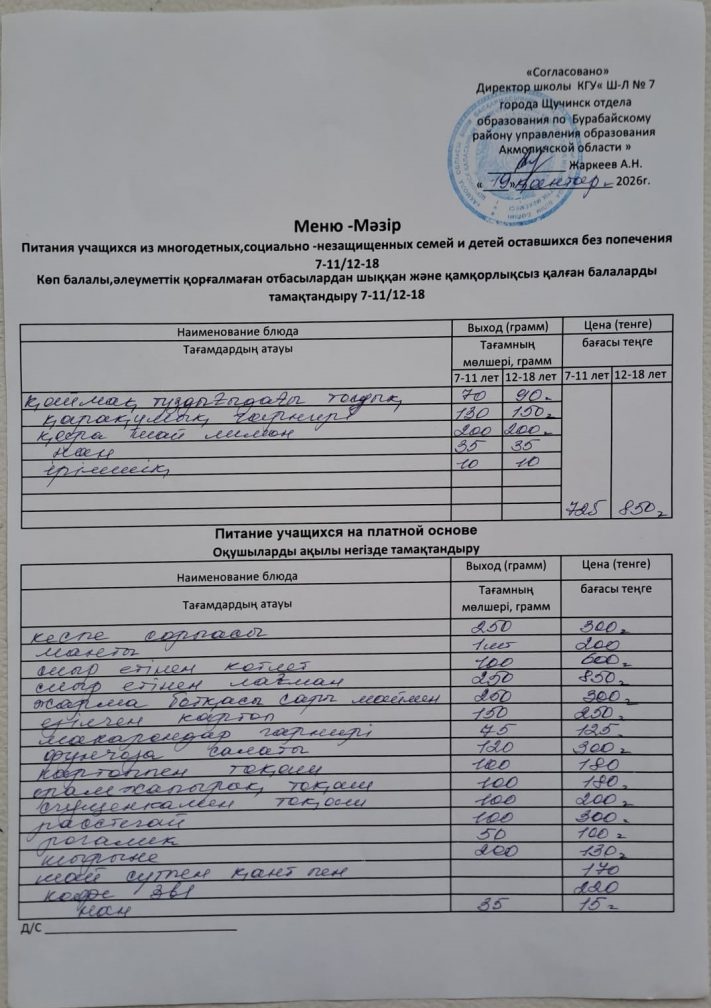 «Согласовано»
Директор школы КГУ« Ш-Л № 7
города Щучинск отдела
образования по Бурабайскому
району управления образования
Акмолинской области »
Жаркеев А.Н.
« 19 » қаңтар 2026г.
Меню -Мәзір
Питания учащихся из многодетных,социально -незащищенных семей и детей оставшихся без попечения
7-11/12-18
Көп балалы,әлеуметтік қорғалмаған отбасылардан шыққан және қамқорлықсыз қалған балаларды
тамақтандыру 7-11/12-18
Наименование блюда Выход (грамм) Цена (тенге)
Тағамдардың атауы Тағамның мөлшері, грамм бағасы теңге
7-11 лет 12-18 лет 7-11 лет 12-18 лет
тұздығыдағы 70 90
қарақұмық гарнирі 130 150
қара шай лимон 200 200
нан 35 35
ірімшік 10 10
725 850
Питание учащихся на платной основе
Оқушыларды ақылы негізде тамақтандыру
Наименование блюда Выход (грамм) Цена (тенге)
Тағамдардың атауы Тағамның мөлшері, грамм бағасы теңге
кеспе сорпасы 250 300
манты 1шт 200
сиыр етінен котлет 100 600
сиыр етінен лағман 250 850
жарма ботқасы сары маймен 250 300
езілген картоп 150 250
макарондар гарнирі 75 125
фунчоза салаты 120 300
картоппен тоқаш 100 180
орамжапырақ тоқаш 100 180
сгущенкамен тоқаш 100 200
расстегай 100 300
рогалик 50 100
шырыне 200 130
шай сүтпен қантпен 170
кофе 3в1 220
нан 35 15
Д/С